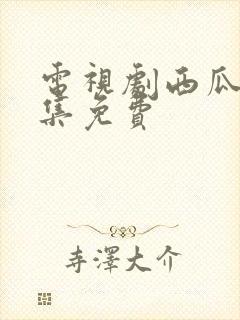 電視劇西瓜
集免費
寺澤大介